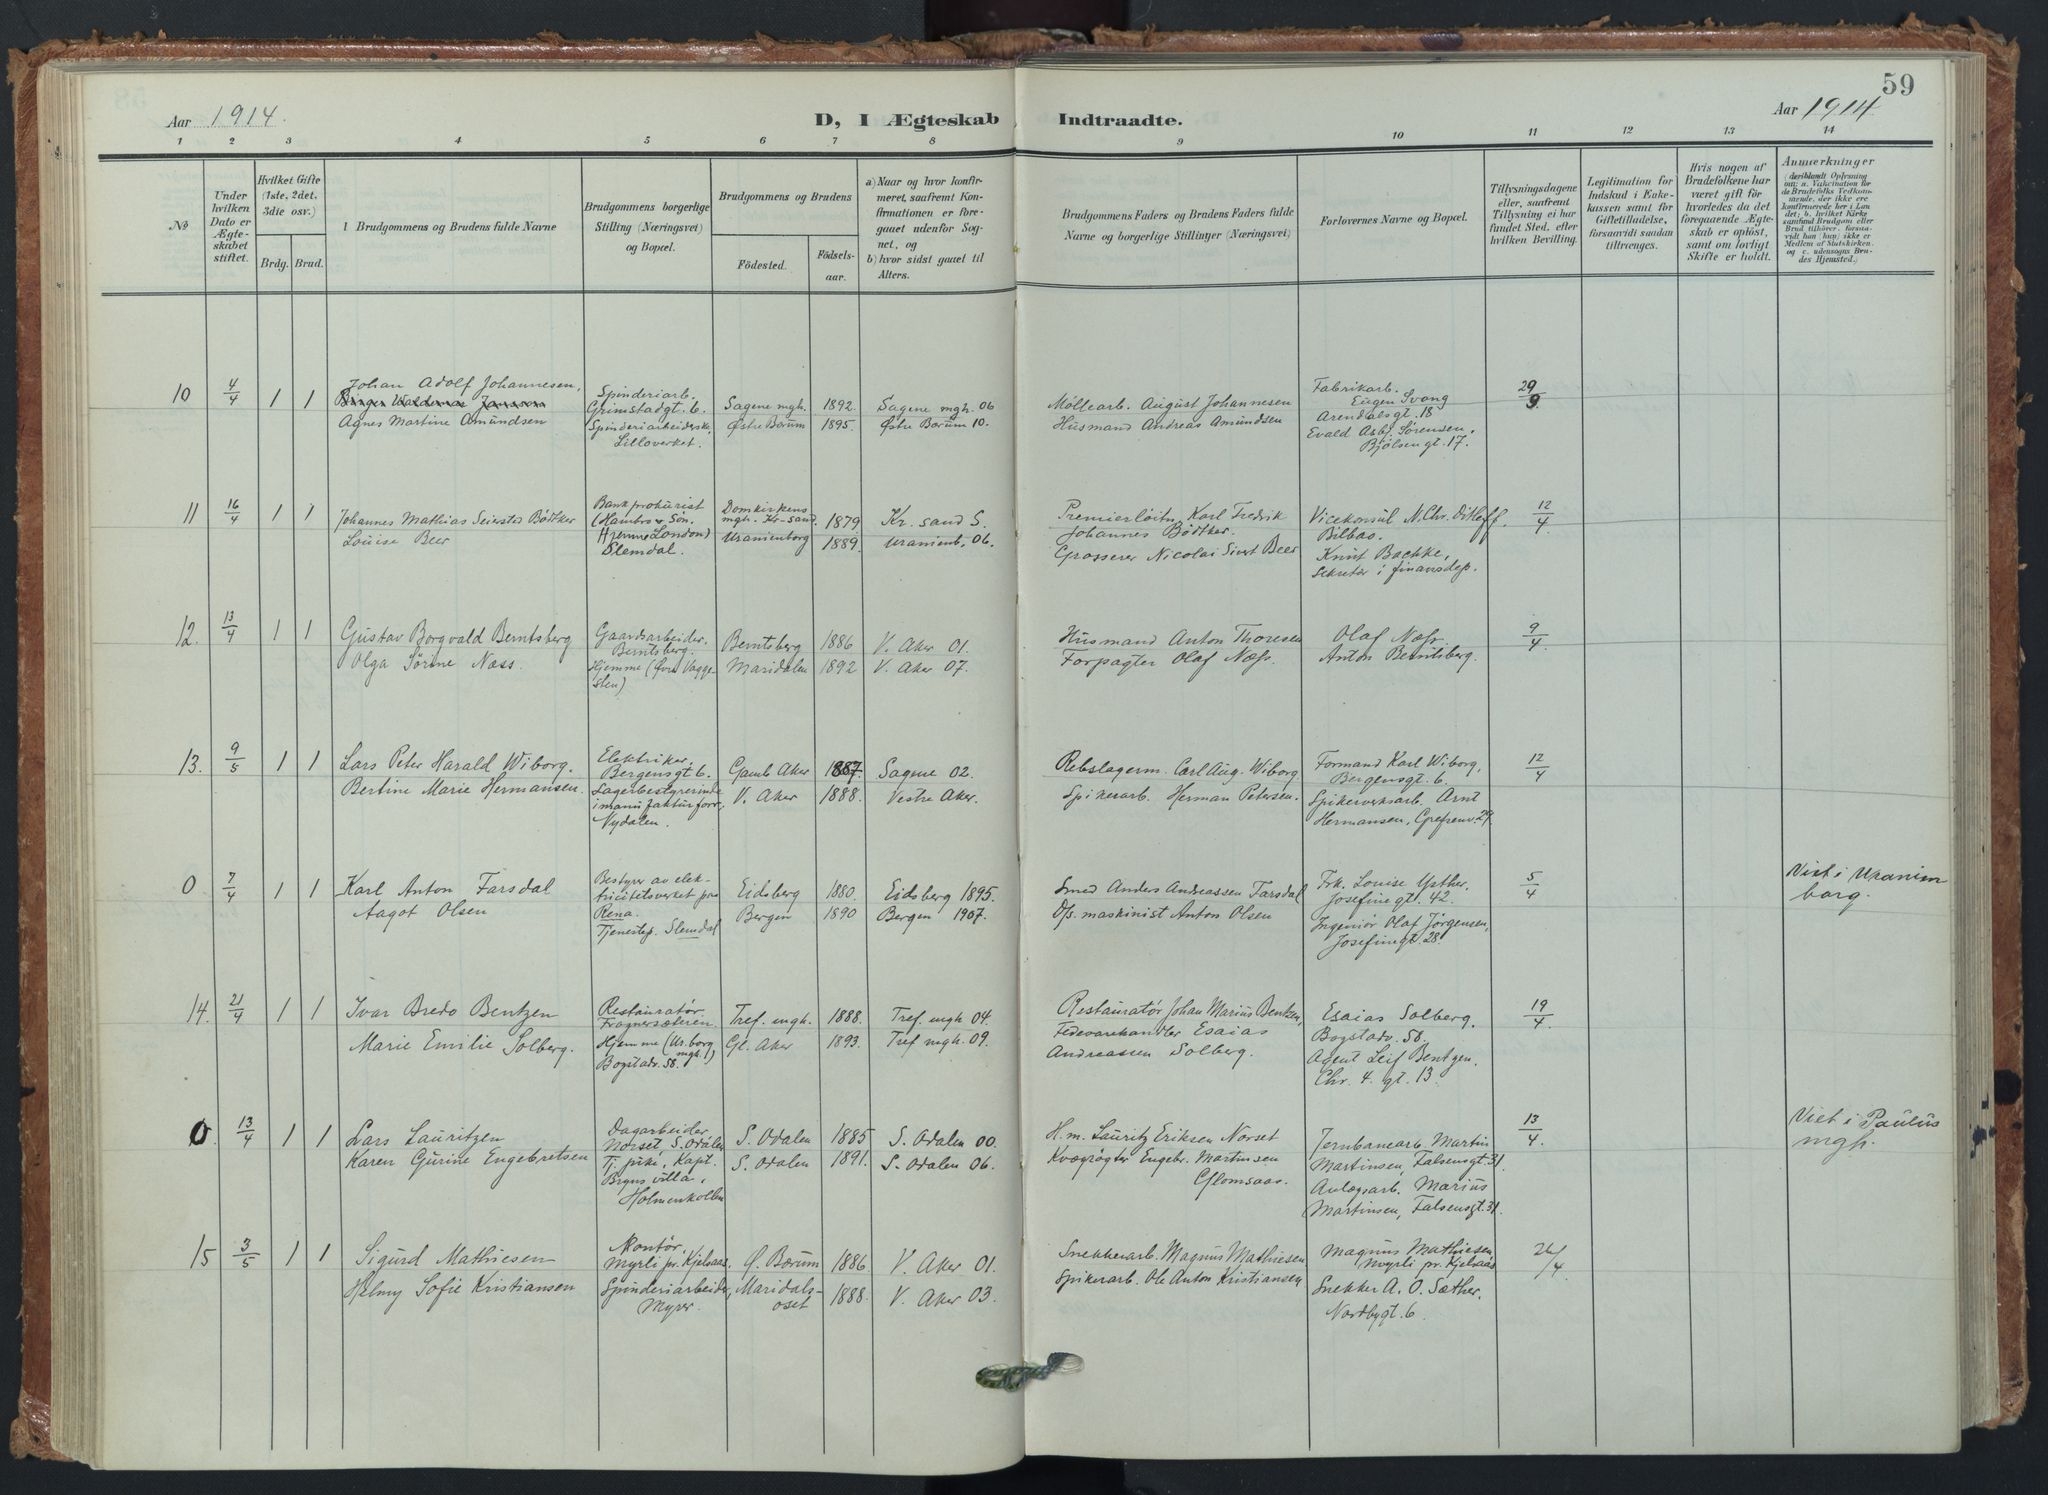 59
Aar 1914.
D, I Ægteskab Indtraadte.
Aar 1914
1 2 3 4 5 6 7 8 9 10 11 12 13 14
№
Under hvilken Dato er Ægteskabet stiftet.
Hvilket Gifte (1ste, 2det, 3die osv.)
Brdg. Brud.
Brudgommens og Brudens fulde Navne
Brudgommens borgerlige Stilling (Næringsvei) og Bopæl.
Brudgommens og Brudens
Födested. Födselsaar.
a) Naar og hvor konfirmeret, saafremt Konfirmationen er foregaaet udenfor Sognet, og
b) hvor sidst gaaet til Alters.
Brudgommens Faders og Brudens Faders fulde Navne og borgerlige Stillinger (Næringsvei)
Forlovernes Navne og Bopæl.
Tillysningsdagene eller, saafremt Tillysning ei har fundet Sted, efter hvilken Bevilling.
Legitimation for Indskud i Enkekassen samt for Giftetilladelse, forsaavidt saadan tiltrænges.
Hvis nogen af Brudefolkene har været gift før hvorledes da det foregaaende Ægteskab er opløst, samt om lovligt Skifte er holdt.
Anmærkninger
10 4/4 1 1
Johan Adolf Johannesen,
Agnes Martine Amundsen
Spinderiarb.
Grimstadgt. 6.
Spinderiarbeiderske,
Lilloverket.
Sagene mgh. 1892. Sagene mgh. 06
Østre Bærum 1895. Østre Bærum 10.
Møllearb. August Johannesen
Husmand Andreas Amundsen
Fabrikarb.
Eugen Svang
Arendalsgt. 18
Evald Asbj. Sørensen.
Bjølsengt. 17.
29/3
11 16/4 1 1
Johannes Mathias Seiersted Bödtker
Louise Beer
Bankprokurist
(Hambro & Søn.
Hjemme London)
Slemdal.
Domkirkens
mgh. Kr-sand. 1879 Kr. sand S.
Uranienborg 1889. Uranienb. 06.
Premierløitn. Karl Fredrik
Johannes Bödtker.
Grosserer Nicolai Sivert Beer
Vicekonsul N. Chr. Ditleff.
Bilbao.
Knut Bachke,
Sekretær i finansdep.
12/4
12. 13/4 1 1
Gustav Borgvald Berntsberg
Olga Sørine Næss.
Gaardsarbeider.
Berntsberg.
Hjemme (Øvre Vaggesten)
Berntsberg 1886 V. Aker 01.
Maridalen 1892 V. Aker 07.
Husmand Anton Thoresen
Forpagter Olaf Næss.
Olaf Næss.
Anton Berntsberg.
9/4
13. 9/5 1 1
Lars Peter Harald Wiborg.
Bertine Marie Hermansen.
Elektriker,
Bergensgt. 6.
Lagerbestyrerinde
i manufakturforr.
Nydalen.
Gamle Aker 1887. Sagene 02.
V. Aker 1888. Vestre Aker.
Rebslagerm. Carl Aug. Wiborg
Spikerarb. Herman Petersen.
Formand Karl Wiborg,
Bergensgt. 6.
Spikerverksarb. Arnt
Hermansen, Grefsenv. 29.
12/4
0 7/4 1 1
Karl Anton Farsdal
Aagot Olsen
Bestyrer av elektricitetsverket paa
Rena.
Tjenestep. Slemdal
Eidsberg 1880. Eidsberg 1895.
Bergen 1890 Bergen 1907.
Smed Anders Andreassen Farsdal
D/s. maskinist Anton Olsen
Frk. Louise Ysther,
Josefinegt. 42.
Ingeniør Olaf Jørgensen,
Josefinegt. 28.
5/4
Viet i Uranienborg.
14. 21/4 1 1
Ivar Bredo Bentzen
Marie Emilie Solberg.
Restauratør.
Frognersæteren.
Hjemme (Ur.borg mgh.)
Bogstadv. 58.
Tref. mgh. 1888. Tref. mgh 04.
Gl. Aker 1893. Tref mgh. 09.
Restauratør Johan Marius Bentzen,
Fedevarehandler Esaias
Andreassen Solberg.
Esaias Solberg.
Bogstadv. 58.
Agent Leif Bentzen.
Chr. 4. gt. 13.
19/4
0. 13/4 1 1
Lars Lauritzen
Karen Gurine Engebretsen
Dagarbeider
Norset, S. Odalen
Tj. pike, Kapt.
Bryns villa,
Holmenkollen
S. Odalen 1885 S. Odalen 00.
S. Odalen 1891. S. Odalen 06.
H.m. Lauritz Eriksen Norset
Kvægrøgter Engebr. Martinsen
Glomsaas.
Jernbanearb. Martin
Martinsen, Falsensgt. 31.
Anlægsarb. Marius
Martinsen, Falsensgt. 31.
13/4
Viet i Paulus
mgh.
15 3/5 1 1
Sigurd Mathiesen
Helmy Sofie Kristiansen
Montør,
Myrli pr. Kjelsaas.
Spinderiarbeider,
Myrer.
Ø. Bærum 1886. V. Aker 01.
Maridalsoset 1888. V. Aker 03.
Snekkerarb. Magnus Mathiesen
Spikerarb. Ole Anton Kristiansen
Magnus Mathiesen
Myrli pr. Kjelsaas
Snekker A. O. Sæther.
Nordbygt. 6
26/4